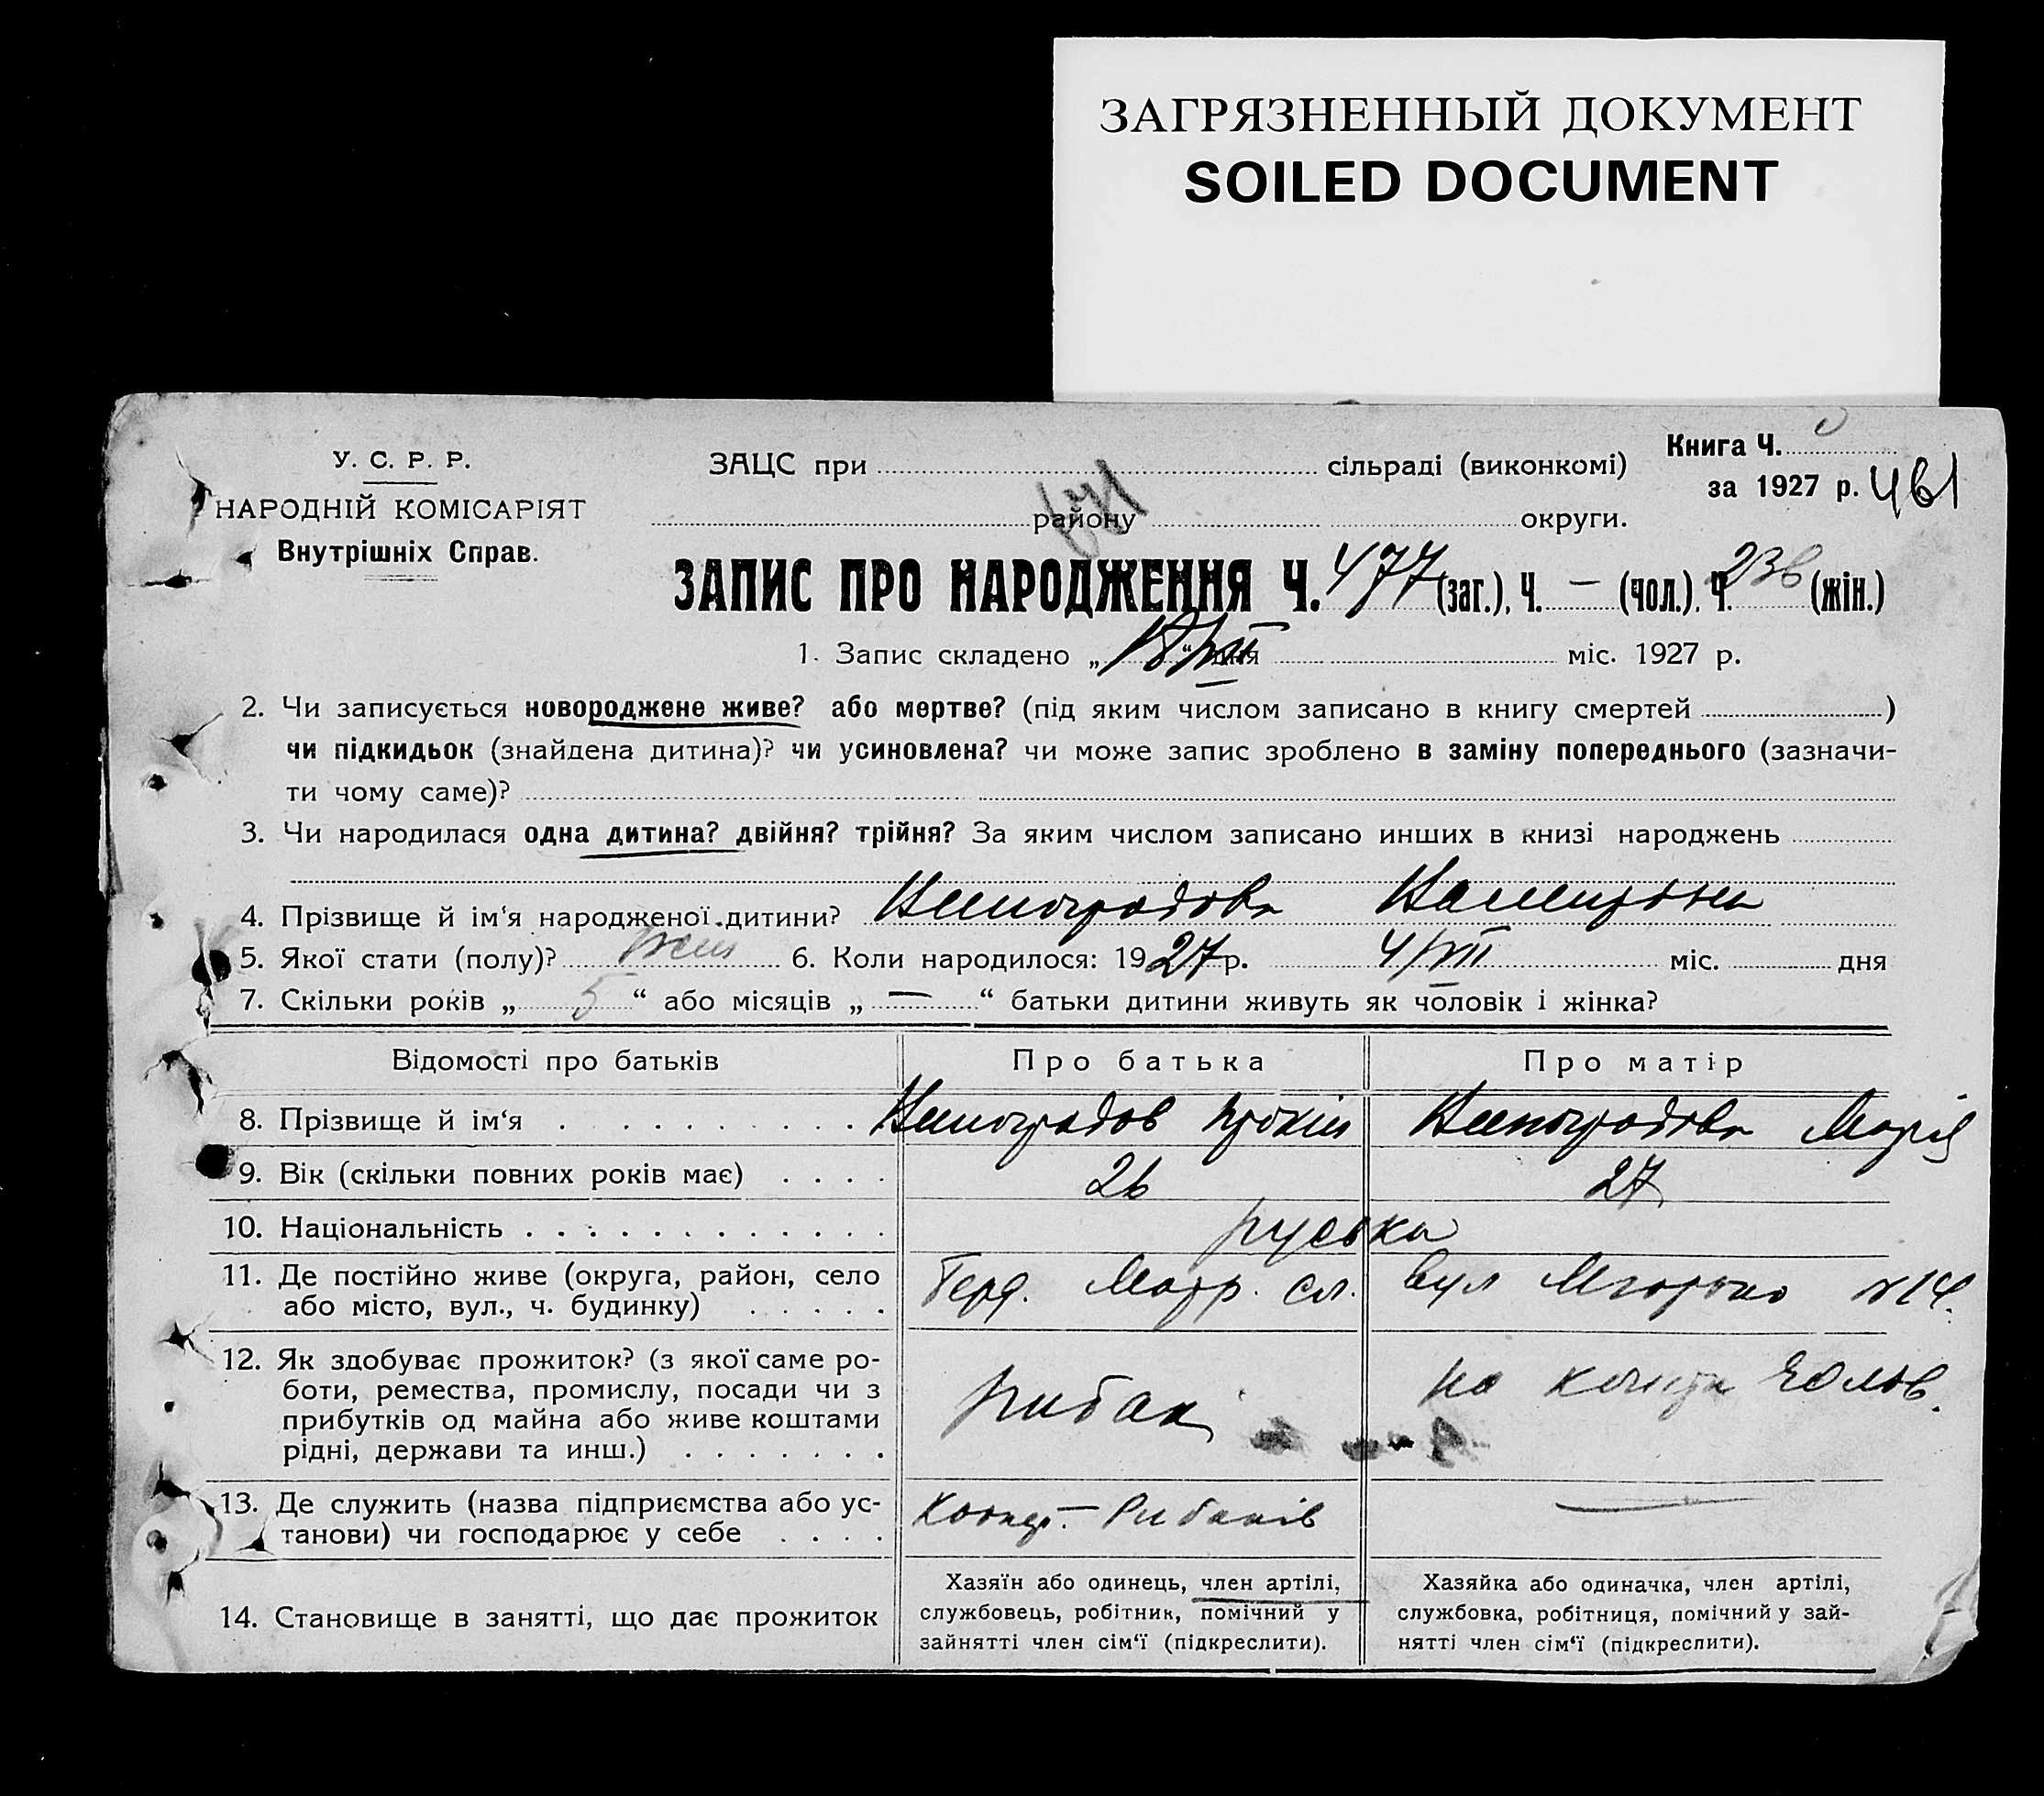 ЗАГРЯЗНЕННЫЙ ДОКУМЕНТ
SOILED DOCUMENT
У. С. Р. Р.
НАРОДНІЙ КОМІСАРІЯТ
Внутрішніх Справ.
ЗАЦС при сільраді (виконкомі)
району округи.
Книга Ч.
за 1927 р. 461
ЗАПИС ПРО НАРОДЖЕННЯ Ч. 477 (заг.), Ч. — (чол.), Ч. 236 (жін.)
1. Запис складено „ 18/VII “ дня міс. 1927 р.
2. Чи записується новороджене живе? або мертве? (під яким числом записано в книгу смертей )
чи підкидьок (знайдена дитина)? чи усиновлена? чи може запис зроблено в заміну попереднього (зазначи-
ти чому саме)?
3. Чи народилася одна дитина? двійня? трійня? За яким числом записано инших в книзі народжень
4. Прізвище й ім‘я народженої дитини? Виноградова
5. Якої стати (полу)? жен 6. Коли народилося: 1927 р. 4/VII міс. дня
7. Скільки років „ 5 “ або місяців „ — “ батьки дитини живуть як чоловік і жінка?
Відомості про батьків Про батька Про матір
8. Прізвище й ім‘я Виноградов Прокіп Виноградова Марія
9. Вік (скільки повних років має) 26 27
10. Національність руська
11. Де постійно живе (округа, район, село
або місто, вул., ч. будинку)
Берд. сл. вул №14.
12. Як здобуває прожиток? (з якої саме ро-
боти, ремества, промислу, посади чи з
прибутків од майна або живе коштами
рідні, держави та инш.)
рибак
на
13. Де служить (назва підприємства або ус-
танови) чи господарює у себе
Рибаків —
14. Становище в занятті, що дає прожиток
Хазяїн або одинець, член артілі,
службовець, робітник, помічний у
зайнятті член сім‘ї (підкреслити).
Хазяйка або одиначка, член артілі,
службовка, робітниця, помічний у зай-
нятті член сім‘ї (підкреслити).